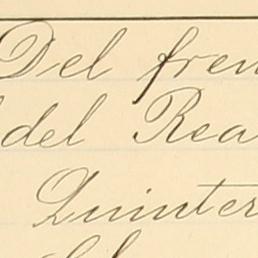 Del fren
del Rea
Quinter